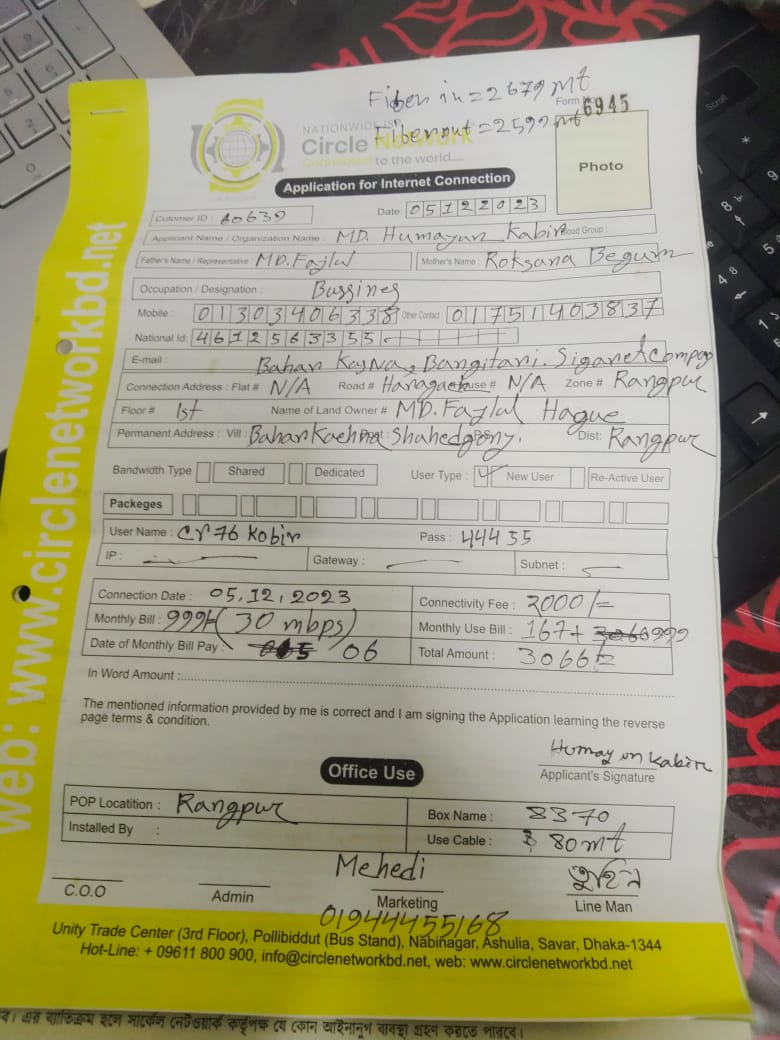 Fiber in = 2679 mt
Form 6945
NATIONWIDE ISP
Fiber out = 2599 mt
Circle Network
Connected to the world....
Photo
Application for Internet Connection
Cutomer ID : 20639
Date: 05122023
Applicant Name / Organization Name : MD. Humayun Kabir Blood Group :
Father's Name / Representative MD. Fajlul Mother's Name : Roksana Begum
Occupation / Designation : Bussines
Mobile : 01303406338 Other Contact 01751403837
National Id: 4612563355
E-mail : Bahar
Connection Address : Flat # N/A Road # House # N/A Zone # Rangpur
Floor # 1st Name of Land Owner # MD. Fajlul Haque
Permanent Address : Vill : Dist: Rangpur
Bandwidth Type Shared Dedicated User Type : New User Re-Active User
Packeges
User Name : Cr76 kobir Pass : 44455
IP : Gateway : Subnet :
Connection Date : 05.12.2023 Connectivity Fee : 2000/=
Monthly Bill : 999/- (30 mbps) Monthly Use Bill : 167+ 999
Date of Monthly Bill Pay : 06 Total Amount : 3066/=
In Word Amount :
The mentioned information provided by me is correct and I am signing the Application learning the reverse
page terms & condition.
Humayun Kabir
Applicant's Signature
Office Use
POP Locatition : Rangpur Box Name : 8370
Installed By : Use Cable : 80 mt
Mehedi তুহিন
C.O.O Admin Marketing Line Man
01944455168
Unity Trade Center (3rd Floor), Pollibiddut (Bus Stand), Nabinagar, Ashulia, Savar, Dhaka-1344
Hot-Line: + 09611 800 900, info@circlenetworkbd.net, web: www.circlenetworkbd.net
web: www.circlenetworkbd.net
এর ব্যতিক্রম হলে সার্কেল নেটওয়ার্ক কর্তৃপক্ষ যে কোন আইনানুগ ব্যবস্থা গ্রহণ করতে পারবে।